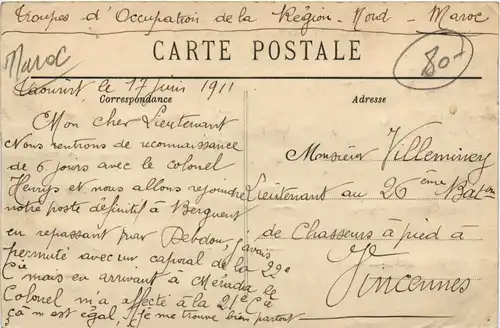 Troupes d'Occupation de la Région - Nord - Maroc
Maroc
80-
CARTE POSTALE
Taourirt le 17 juin 1911
Correspondance
Adresse
Mon cher Lieutenant
Nous rentrons de reconnaissance
de 6 jours avec le colonel
Henrys et nous allons rejoindre
notre poste définitif à Berguent
en repassant par Debdou, j'avais
permuté avec un caporal de la 22e
Cie mais en arrivant à Mérada le
Colonel m'a affecté à la 21e Cie
ça m'est égal, je me trouve bien partout
Monsieur Villeminey
Lieutenant au 26ème Baton
de Chasseurs à pied à
Vincennes